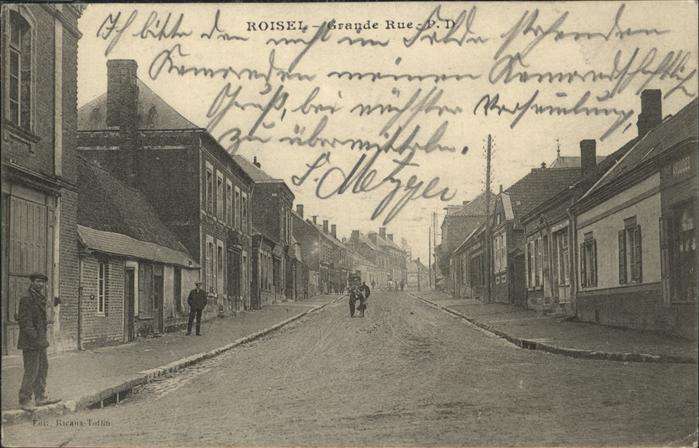 ROISEL – Grande Rue - P. D.
Ich bitte den nicht im Felde stehenden
Kameraden meinen Kameradschaftl.
Gruß, bei nächster Versamlung,
zu übermitteln.
S. Metzger
Edit. Ricaux-Tottin